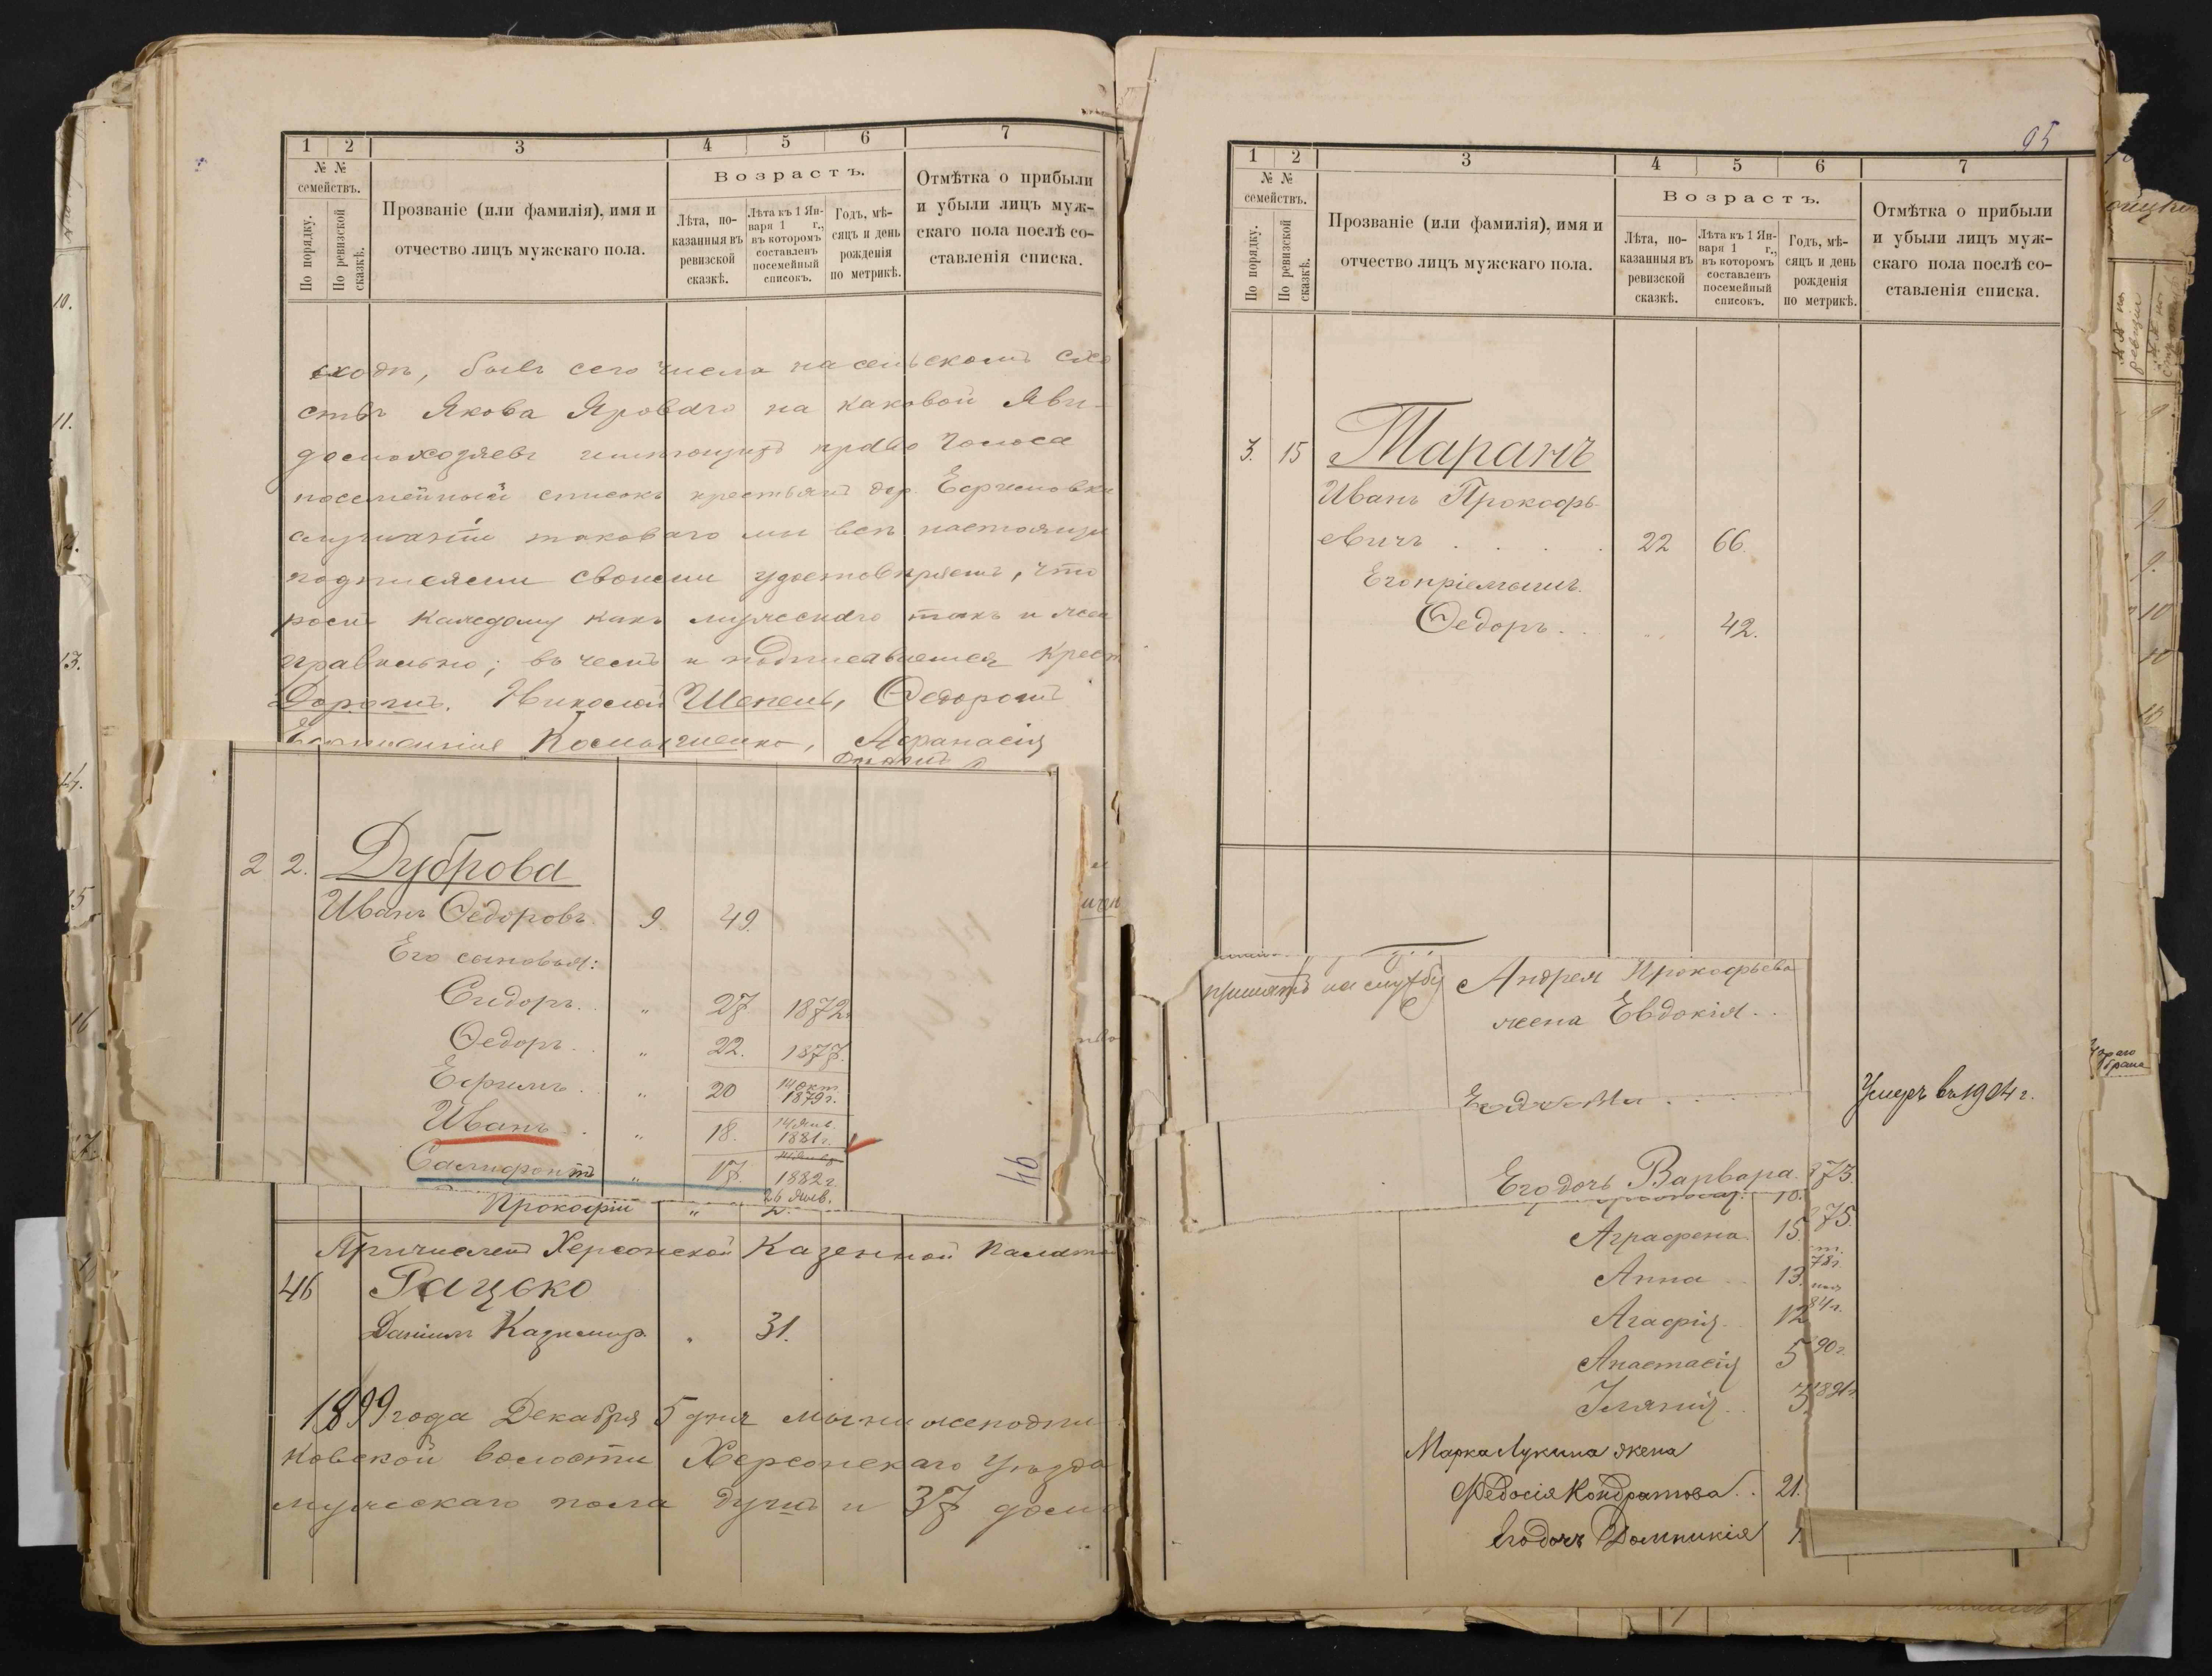 1 2 3 4 5 6 7
№ № семействъ.
По порядку.
По ревизской сказкѣ.
Прозваніе (или фамилія), имя и
отчество лицъ мужскаго пола.
Возрастъ.
Лѣта, по-
казанныя въ
ревизской
сказкѣ.
Лѣта къ 1 Ян-
варя 1 г.,
въ которомъ
составленъ
посемейный
списокъ.
Годъ, мѣ-
сяцъ и день
рожденія
по метрикѣ.
Отмѣтка о прибыли
и убыли лицъ муж-
скаго пола послѣ со-
ставленія списка.
сходъ, бывъ сего числа на сельскомъ
ствъ Якова Яроваго на каковой яви-
домохозяевъ имѣющихъ право голоса
посемейный списокъ крестьянъ дер. Ефимовки
таковаго мы всѣ настоящи
подписями своими удостовѣряемъ, что
каждому какъ мужскаго такъ и жен
правильно; въ чемъ и подписавшемся крест
Николай Шепель, Ѳедоромъ
Афанасія
2 2. Дуброва
Иванъ Ѳедоровъ 9 49.
Его сыновья:
Сидоръ. " 27 1872
Ѳедоръ. " 22. 1877.
Ефимъ. " 20 14 окт. 1879 г.
Иванъ " 18. 14 Янв. 1881 г.
" 17. 1882 г. 26 Янв.
Прокофій "
46
Причисленъ Херсонской Казенной Палатой
46 Рацько
Даніилъ Казимир. " 31.
1899 года Декабря 5 дня мы нижеподпи
ковской волости Херсонскаго уѣзда
мужскаго пола душъ и 37 домо
95
1 2 3 4 5 6 7
№ № семействъ.
По порядку.
По ревизской сказкѣ.
Прозваніе (или фамилія), имя и
отчество лицъ мужскаго пола.
Возрастъ.
Лѣта, по-
казанныя въ
ревизской
сказкѣ.
Лѣта къ 1 Ян-
варя 1 г.,
въ которомъ
составленъ
посемейный
списокъ.
Годъ, мѣ-
сяцъ и день
рожденія
по метрикѣ.
Отмѣтка о прибыли
и убыли лицъ муж-
скаго пола послѣ со-
ставленія списка.
3. 15 Таранъ
Иванъ Прокофь-
евичъ 22 66.
Его пріемышъ.
Ѳедоръ. 42.
принятъ на службу Андрея Прокофьева
жена Евдокія
Умеръ въ 1904 г.
Его дочь Варвара. 73.
Аграфена 15. 75.
Анна 13. 78 г.
Агафія 12 84 г.
Анастасія 5 90 г.
3 1891 г.
Марка Лукина жена
Федосія Кондратова. 21.
Его дочь Домникія 1.